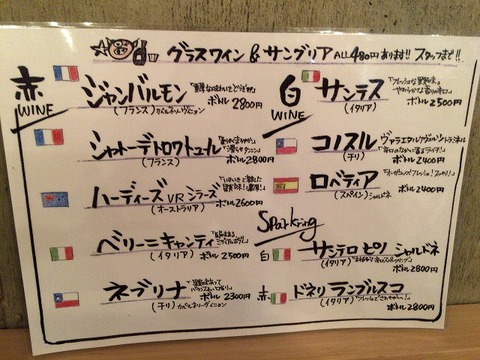 グラスワイン & サングリア ALL 480円あります!! スタッフまで!!
赤
WINE
ジャンバルモン
(フランス) カベルネソーヴィニョン
ボトル 2800円
シャトーデトロワトュール
(フランス)
ボトル2800円
ハーディーズ VR シラーズ
(オーストラリア)
ボトル2600円
ベリーニキャンティ
(イタリア)
ボトル 2500円
ネブリナ
(チリ)
ボトル 2300円
白
WINE
サンテス
(イタリア)
ボトル 2500円
コノスル
(チリ)
ボトル2400円
ロベティア
(スペイン)
ボトル2400円
Sparkring
白
サンテロ ピノ シャルドネ
(イタリア)
ボトル2800円
赤
ドネリ ランブルスコ
(イタリア)
ボトル2800円